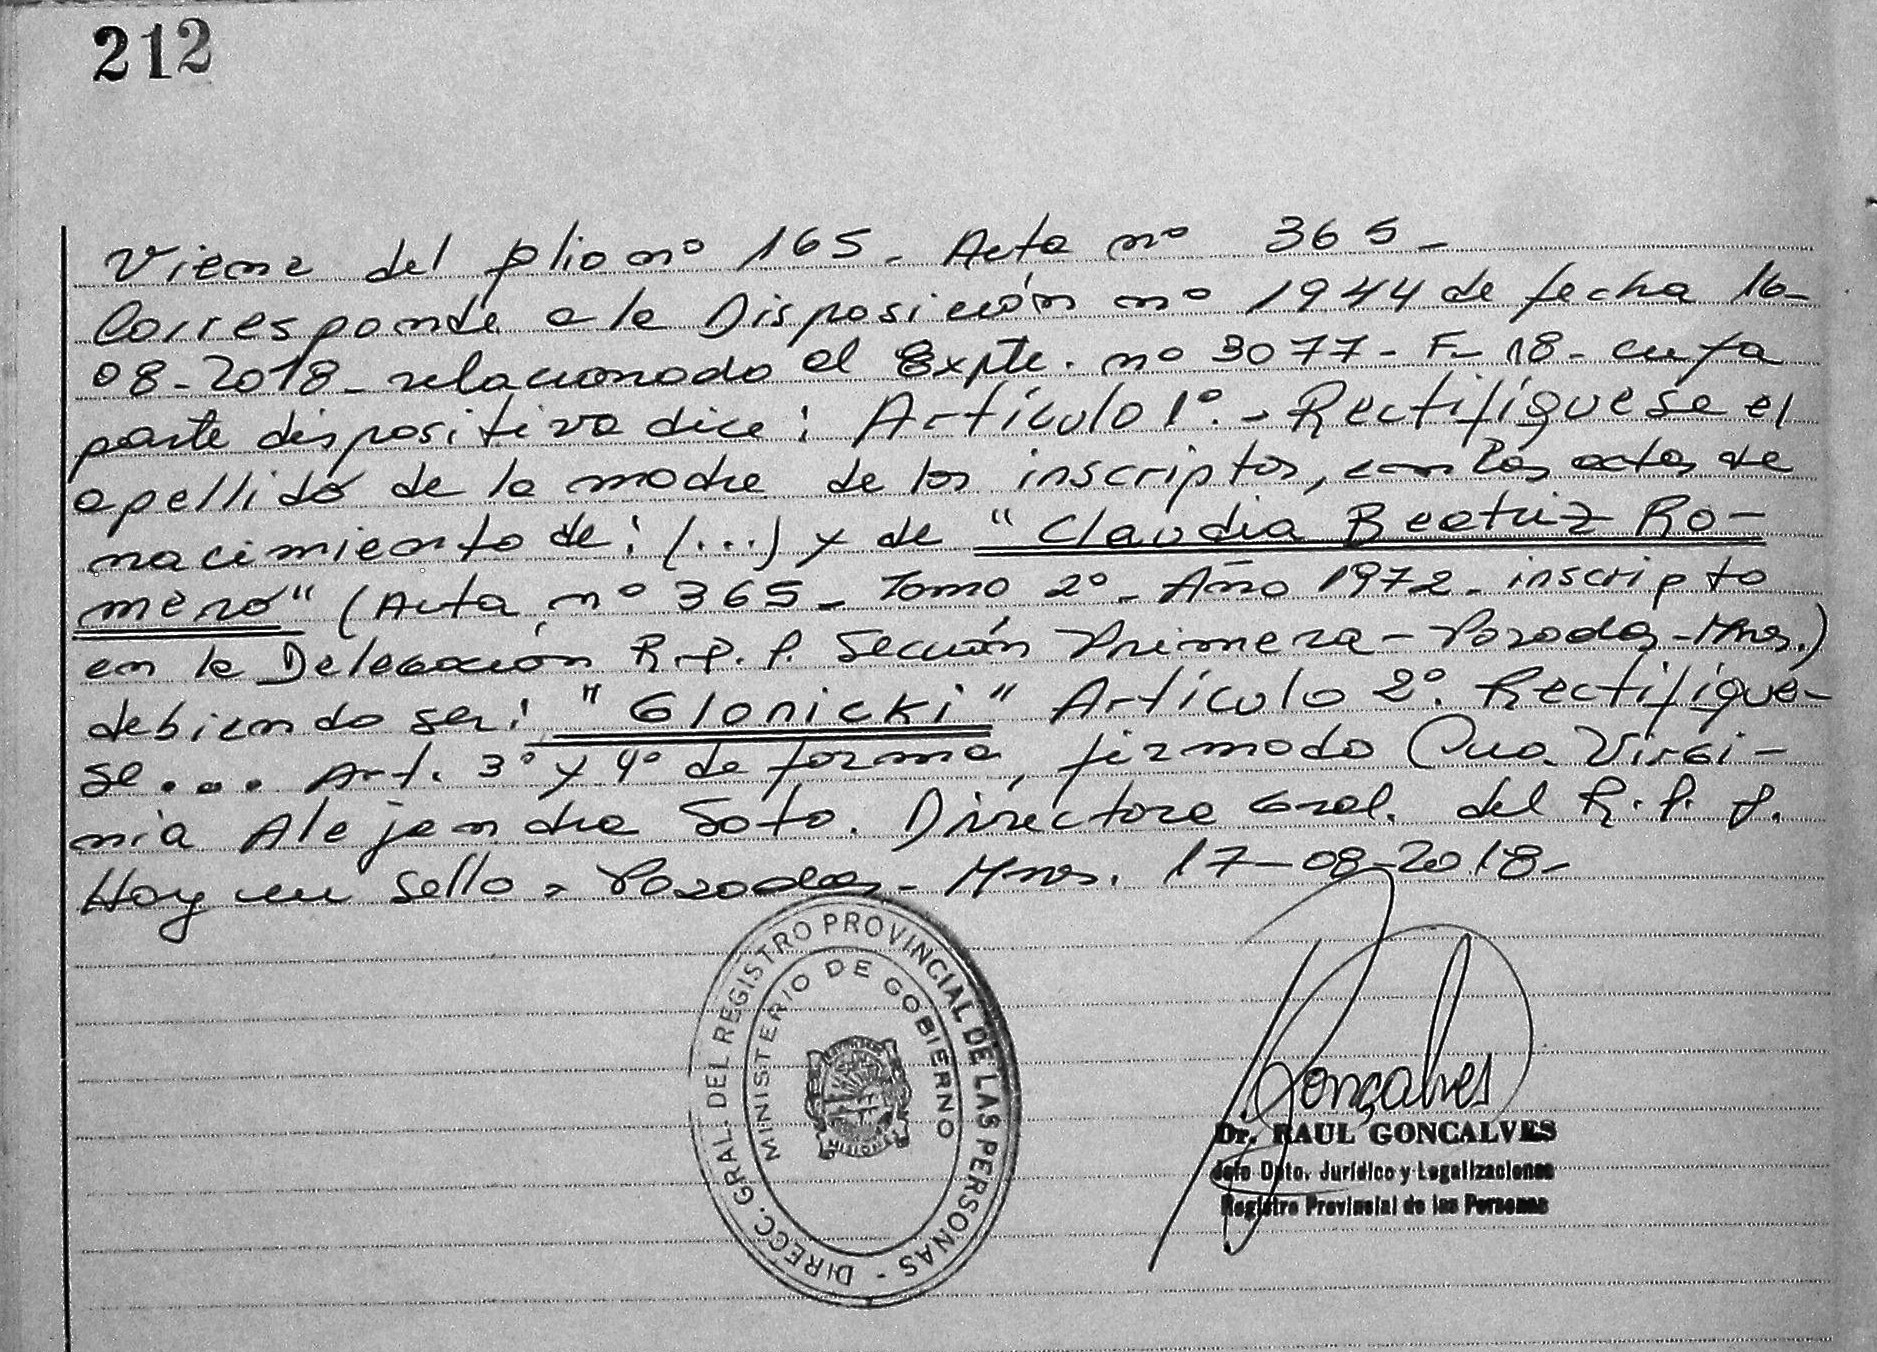 212
Viene del folio nº 165. Acta nº 365-
Corresponde a la Disposición nº 1944 de fecha 16-
08-2018- relacionado al Expte. nº 3077- F- 18- cuya
parte dispositiva dice: Artículo 1º.- Rectifíquese el
apellido de la madre de los inscriptos, en las actas de
nacimiento de: (...) y de "Claudia Beatriz Ro-
mero" (Acta nº 365- Tomo 2º- Año 1972- inscripto
en la Delegación R.P.P. Sección Primera- Posadas- Mnes.)
debiendo ser: "Glonicki" Artículo 2º. Rectifíque-
se.... Art. 3º y 4º de forma, firmado Cra. Virgi-
nia Alejandra Soto. Directora Gral. del R.P.P.
Hay un sello- Posadas- Mnes. 17-08-2018-
DIRECC. GRAL. DEL REGISTRO PROVINCIAL DE LAS PERSONAS -
MINISTERIO DE GOBIERNO
MISIONES
Gonçalves
Dr. RAUL GONCALVES
Jefe Dpto. Jurídico y Legalizaciones
Registro Provincial de las Personas